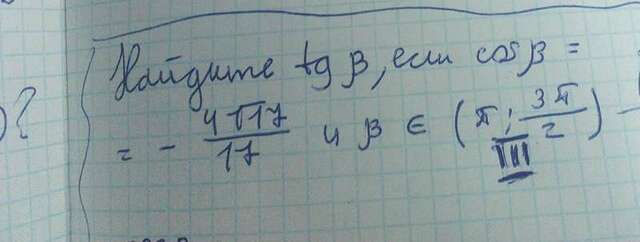 Найдите tg β, если cos β =
= - 4√17/17 и β ∈ (π; 3π/2)
III
)?